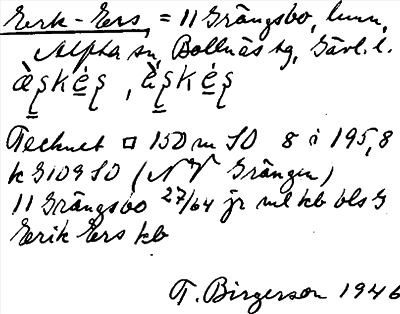 Eerk-Ers, = 11 Grängsbo, hmn,
Alfta sn, Bollnäs tg, Gävl. l.
Tecknet □ 150 m SO 8 i 195,8
k 9109 SO (NV Grängen)
11 Grängsbo 27/64 jr ml kb bls G
Eerik Ers kb
T. Birgerson 1946